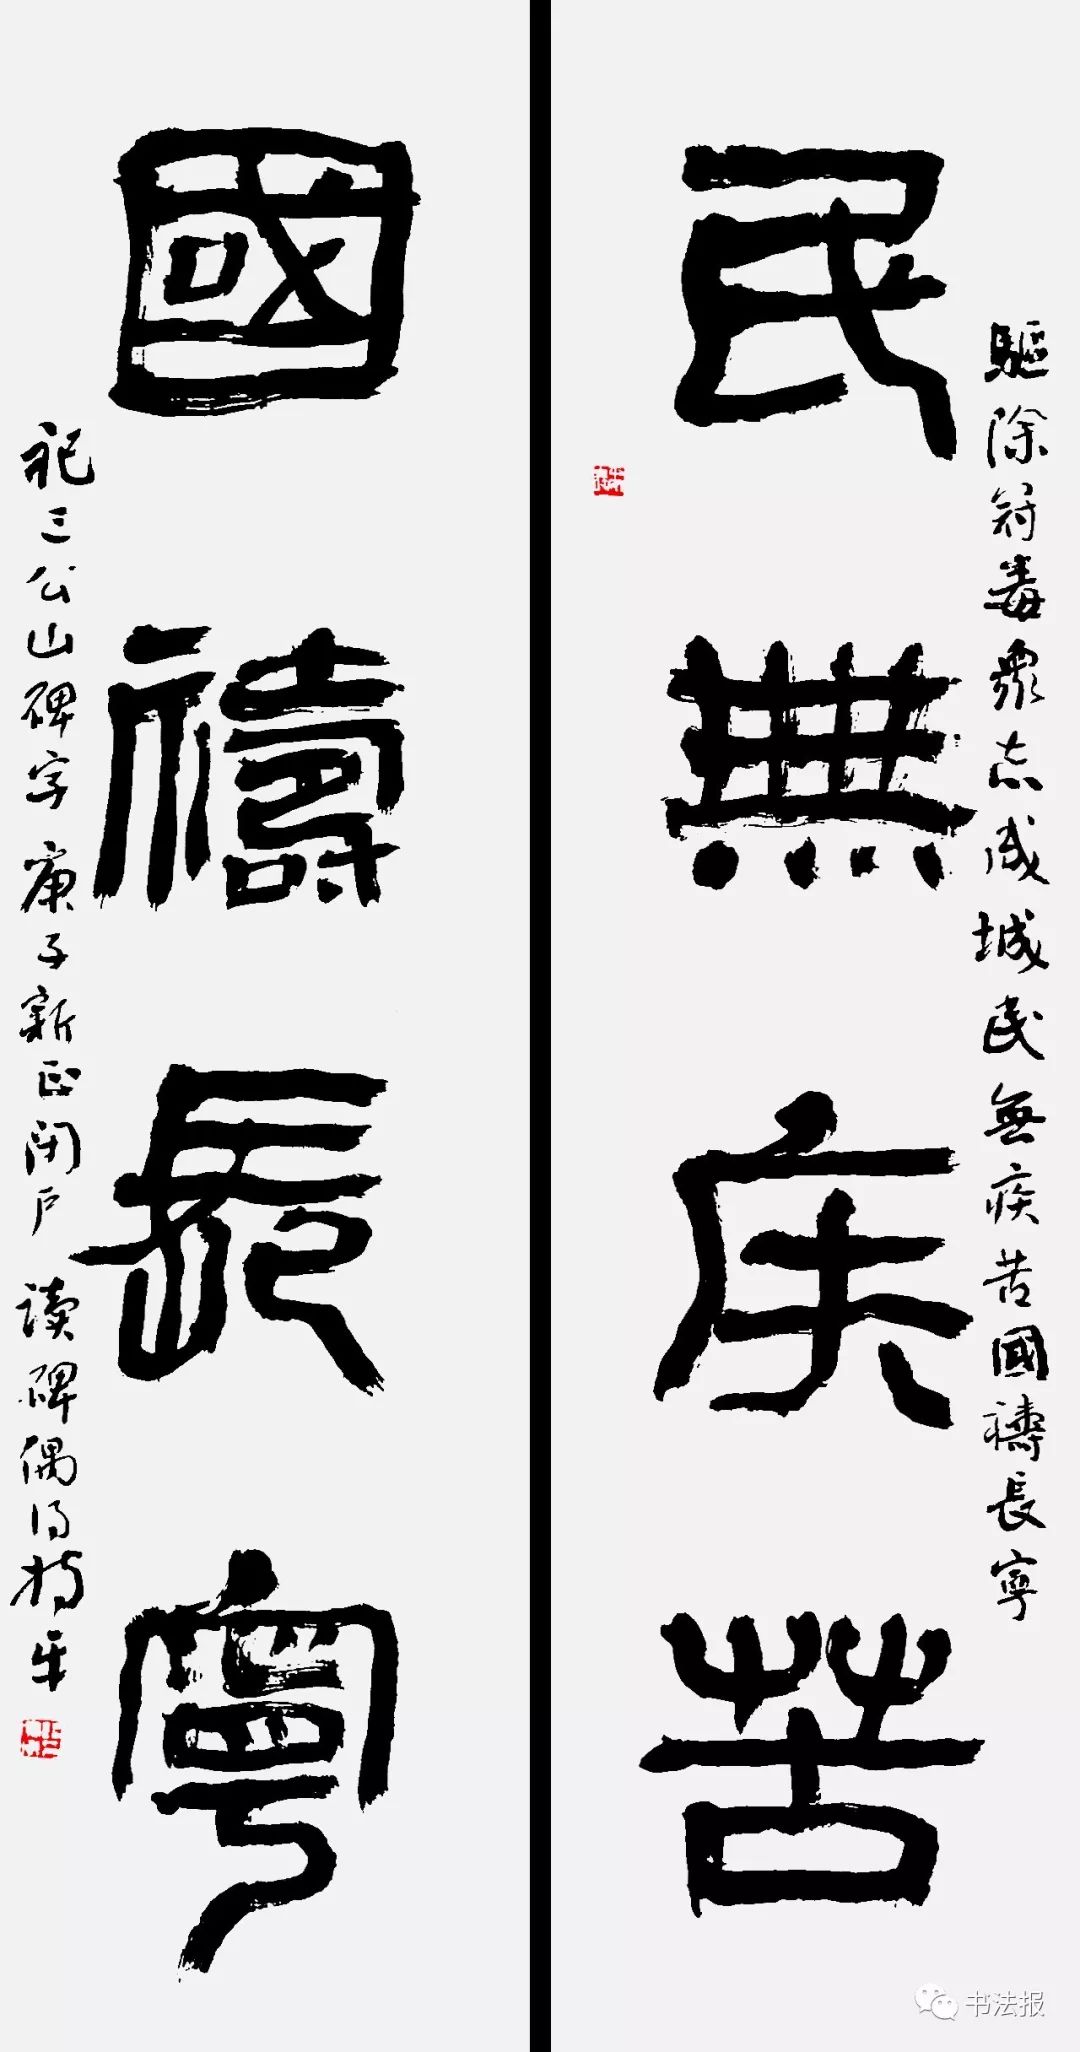 民無疾苦
驅除冠毒眾志成城民無疾苦國禱長寧
國禱長寧
祀三公山碑字庚子新正閉戶讀碑偶得
书法报